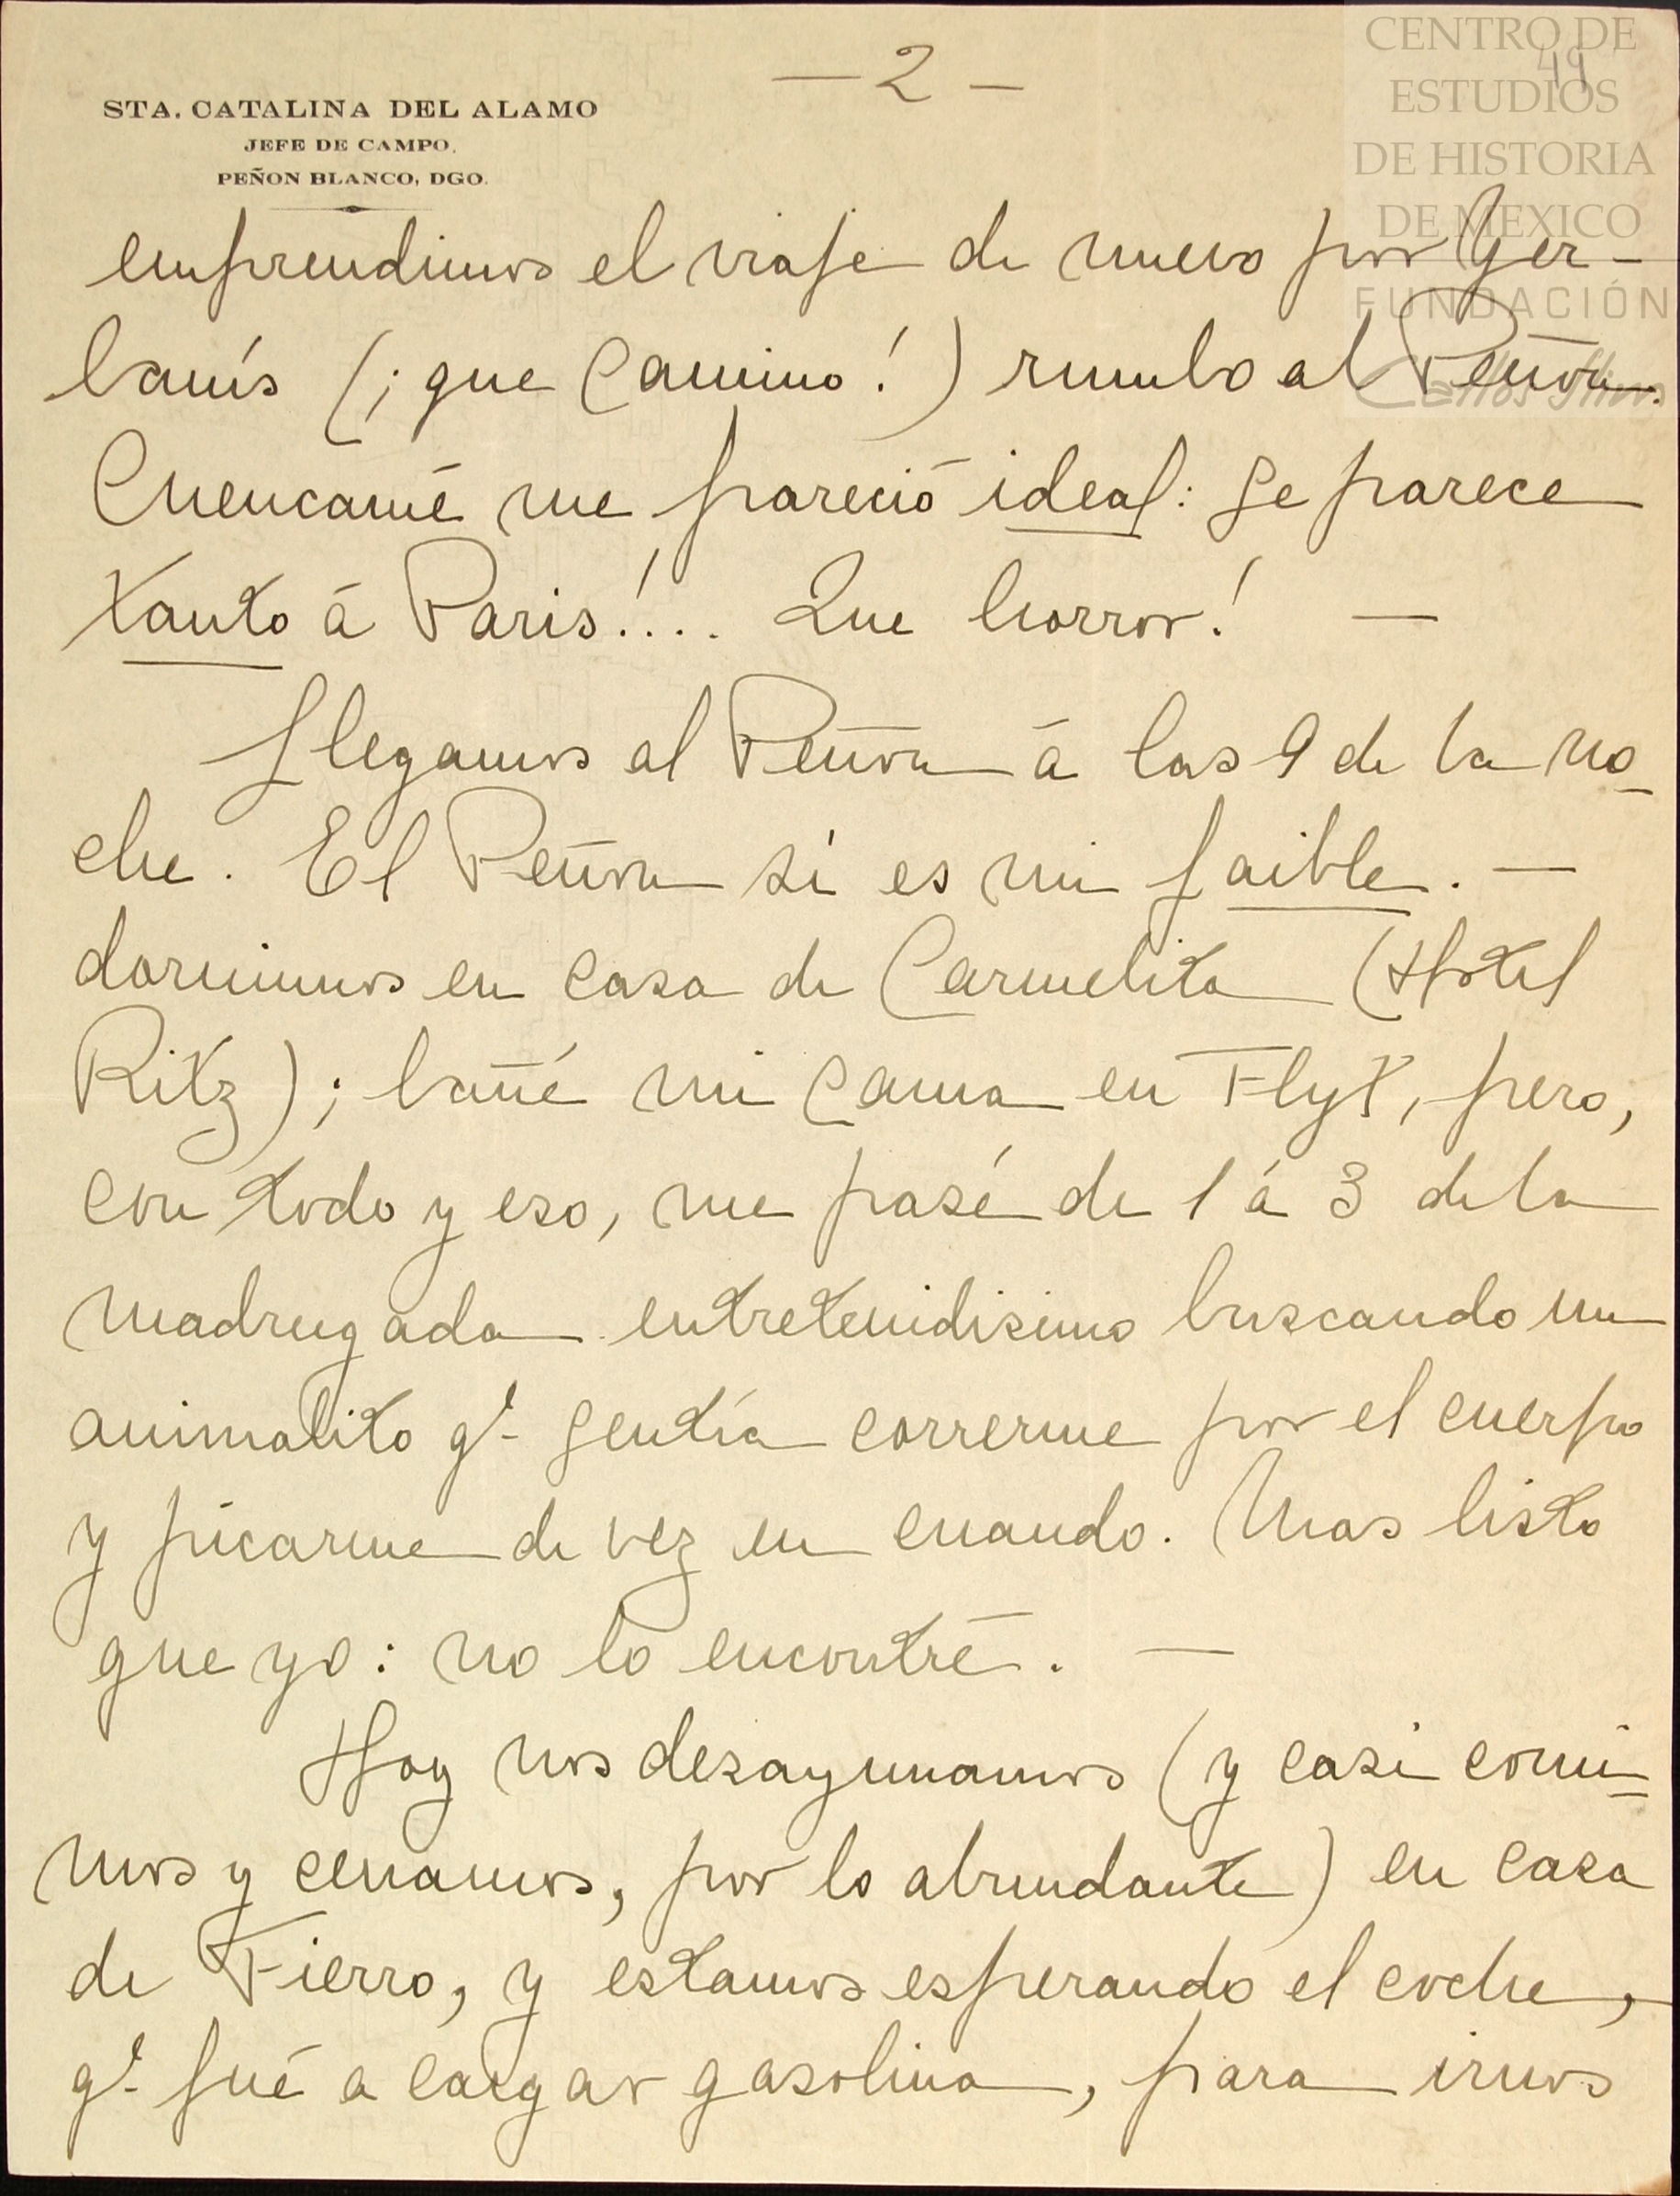 — 2 —
49
CENTRO DE
ESTUDIOS
DE HISTORIA
DE MEXICO
FUNDACIÓN
Carlos Slim
STA. CATALINA DEL ALAMO
JEFE DE CAMPO.
PEÑON BLANCO, DGO.
emprendimos el viaje de nuevo por Yer-
banís (¡que camino!) rumbo al Peñon.
Cuencamé me pareció ideal: se parece
tanto á Paris!.... Que horror! —
Llegamos al Peñon á las 9 de la no-
che. El Peñon sí es mi faible. —
dormimos en casa de Carmelita (Hotel
Ritz); bañé mi cama en Flyt, pero,
con todo y eso, me pasé de 1 á 3 de la
madrugada entretenidisimo buscando un
animalito qe sentía correrme por el cuerpo
y picarme de vez en cuando. Mas listo
que yo: no lo encontré. —
Hoy nos desayunamos (y casi comi-
mos y cenamos, por lo abundante) en casa
de Fierro, y estamos esperando el coche,
qe fué a cargar gasolina, para irnos